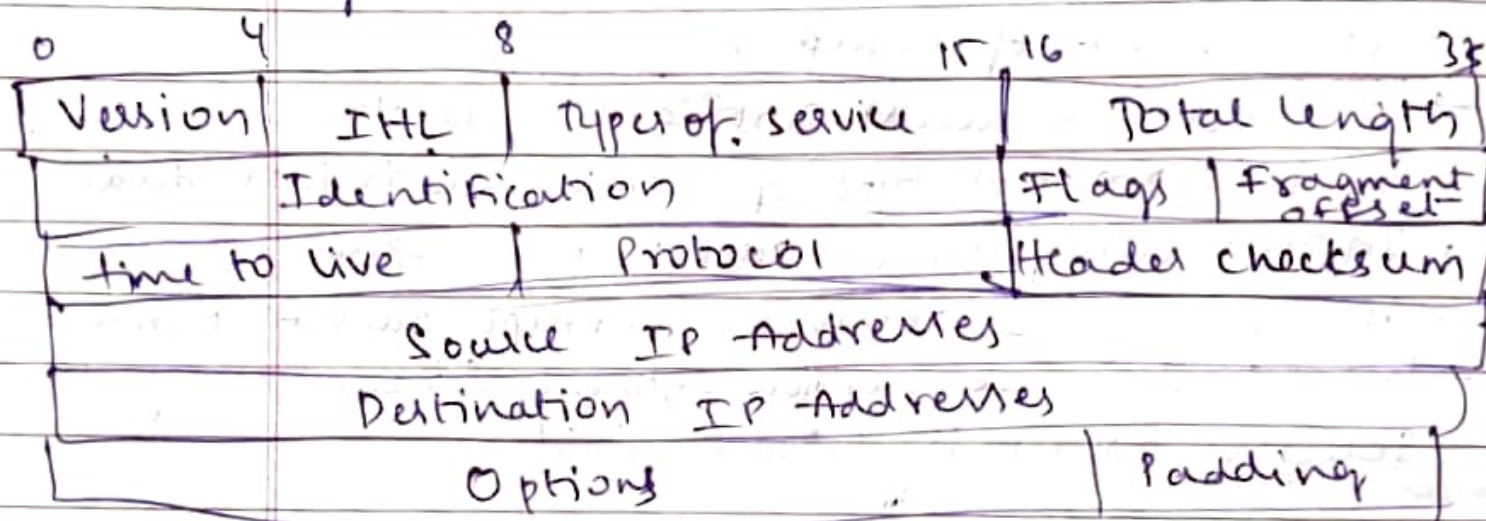 0 4 8 15 16 33
Version IHL Types of. service Total length
Identification Flags Fragment offset
time to live Protocol Header checksum
Source IP Addresses
Destination IP Addresses
Options Padding